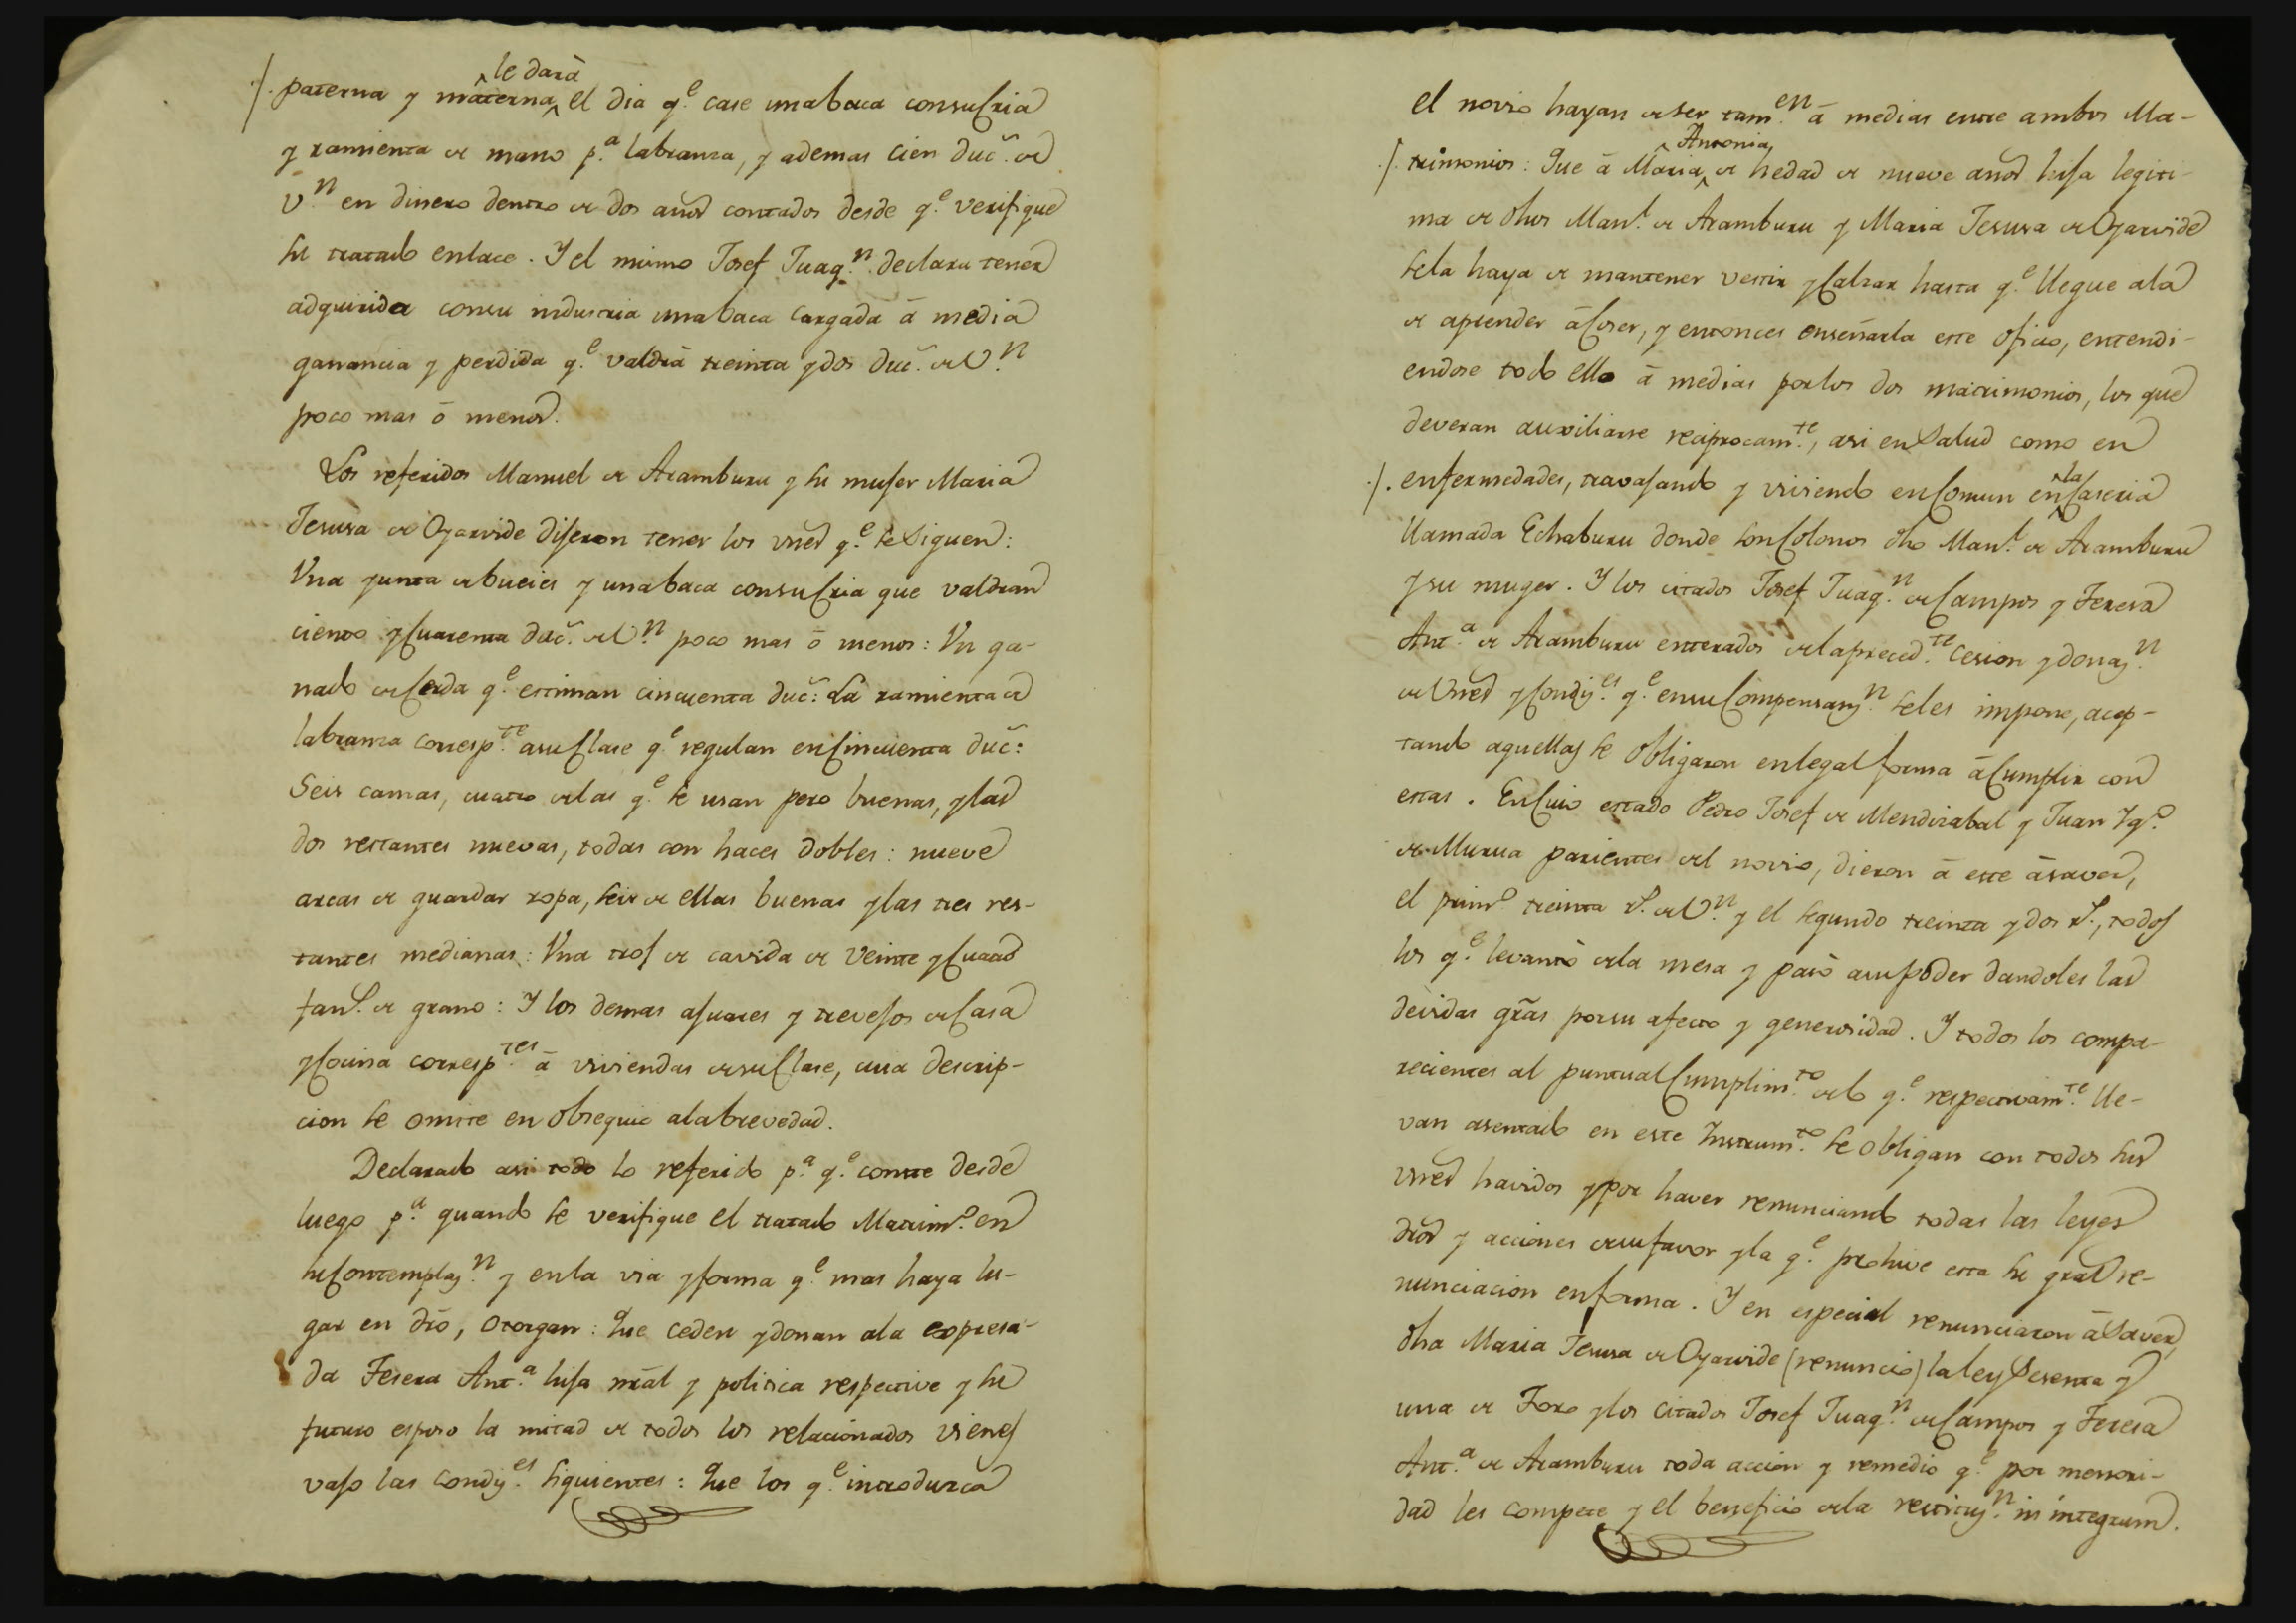 le dará
/. paterna y materna^ el dia q.e case una baca con su Cria
y ramienta de mano p.a labranza, y ademas cien duc.s de
V.n en dinero dentro de dos años contados desde q.e verifique
su tratado enlace. Y el mismo Josef Juaq.n declara tener
adquirida con su industria una baca cargada á media
ganancia y perdida q.e valdrá treinta y dos duc.s de V.n
poco mas ó menos.
Los referidos Manuel de Aramburu y su muger Maria
Jesusa de Oyarvide diseron tener los vnes q.e se siguen:
Una yunta de bueies y una baca con su Cria que valdran
ciento y Cuarenta duc.s de V.n poco mas ó menos: Un ga-
nado de Cerda q.e estiman cincuenta duc.s: La ramienta de
labranza corresp.te a su Clase q.e regulan en Cincuenta duc.s:
Seis camas, cuatro de las q.e se usan pero buenas, y las
dos restantes nuevas, todas con haces dobles: nueve
arcas de guardar ropa, seis de ellas buenas y las tres res-
tantes medianas: Una tros de cavida de veinte y Cuatro
fan.s de grano: Y los demas asuares y trevesos de Casa
y Cocina corresp.tes á viviendas de su Clase, cuia descrip-
cion se omite en obsequio a la brevedad.
Declarado asi todo lo referido p.a q.e conste desde
luego p.a quando se verifique el tratado Matrim.o en
su Contemplaz.n y en la via y forma q.e mas haya lu-
gar en dro, otorgan: Que ceden y donan a la expresa-
da Teresa Ant.a hisa nral y politica respective y su
futuro esposo la mitad de todos los relacionados vienes
vaso las condiz.es siguientes: Que los q.e introdurca
el novio hayan de ser tam.en á medias entre ambos Ma-
Antonia
/. trimonios: Que á Maria^ de hedad de nueve años hisa legiti-
ma de dhos Man.l de Aramburu y Maria Jesusa de Oyarvide
se la haya de mantener vestir y Calzar hasta q.e llegue a la
de aprender á Coser, y entonces enseñarla este oficio, entendi-
endose todo ello á medias por los dos matrimonios, los que
deveran auxiliarse reciprocam.te, asi en Salud como en
la
/. enfermedades, travasando y viviendo en Comun en^ Caseria
llamada Echaburu donde son Colonos dho Man.l de Aramburu
y su muger. Y los citados Josef Juaq.n de Campos y Teresa
Ant.a de Aramburu enterados de la preced.te Cesion y donaz.n
de Vnes y Condiz.es q.e en su Compensaz.n se les impone, acep-
tando aquellas se obligaron en legal forma á Cumplir con
estas. En Cuio estado Pedro Josef de Mendizabal y Juan Yg.o
de Murua parientes del novio, dieron á este á saver,
el prim.o treinta r.s de V.n y el segundo treinta y dos r.s, todos
los q.e levantó de la mesa y pasó a su poder dandoles las
devidas gras por su afecto y generosidad. Y todos los compa-
recientes al puntual Cumplim.to de lo q.e respectivam.te lle-
van asentado en este Instrum.to se obligan con todos sus
vnes havidos y por haver renunciando todas las leyes
dros y acciones de su favor y la q.e prohive esta su gral re-
nunciacion en forma. Y en especial renunciaron á Saver,
dha Maria Jesusa de Oyarvide (renunció) la ley Sesenta y
una de Toro y los citados Josef Juaq.n de Campos y Teresa
Ant.a de Aramburu toda accion y remedio q.e por menori-
dad les compete y el beneficio de la restituz.n in integrum.